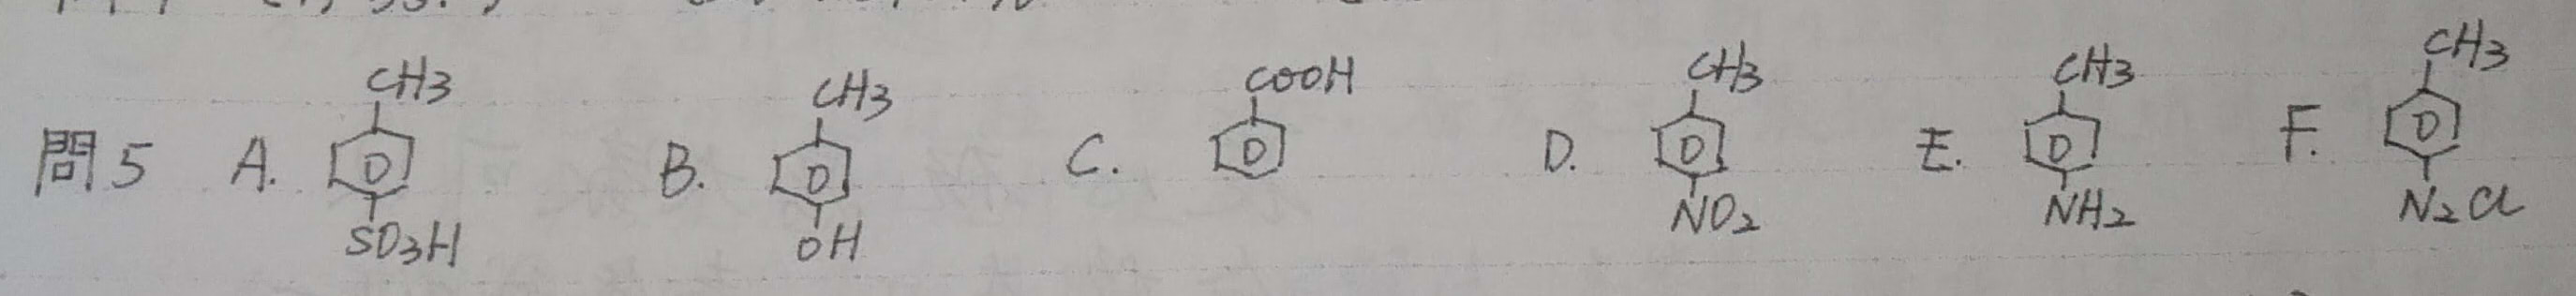 問5 A. CH3 SO3H B. CH3 OH C. COOH D. CH3 NO2 E. CH3 NH2 F. CH3 N2Cl